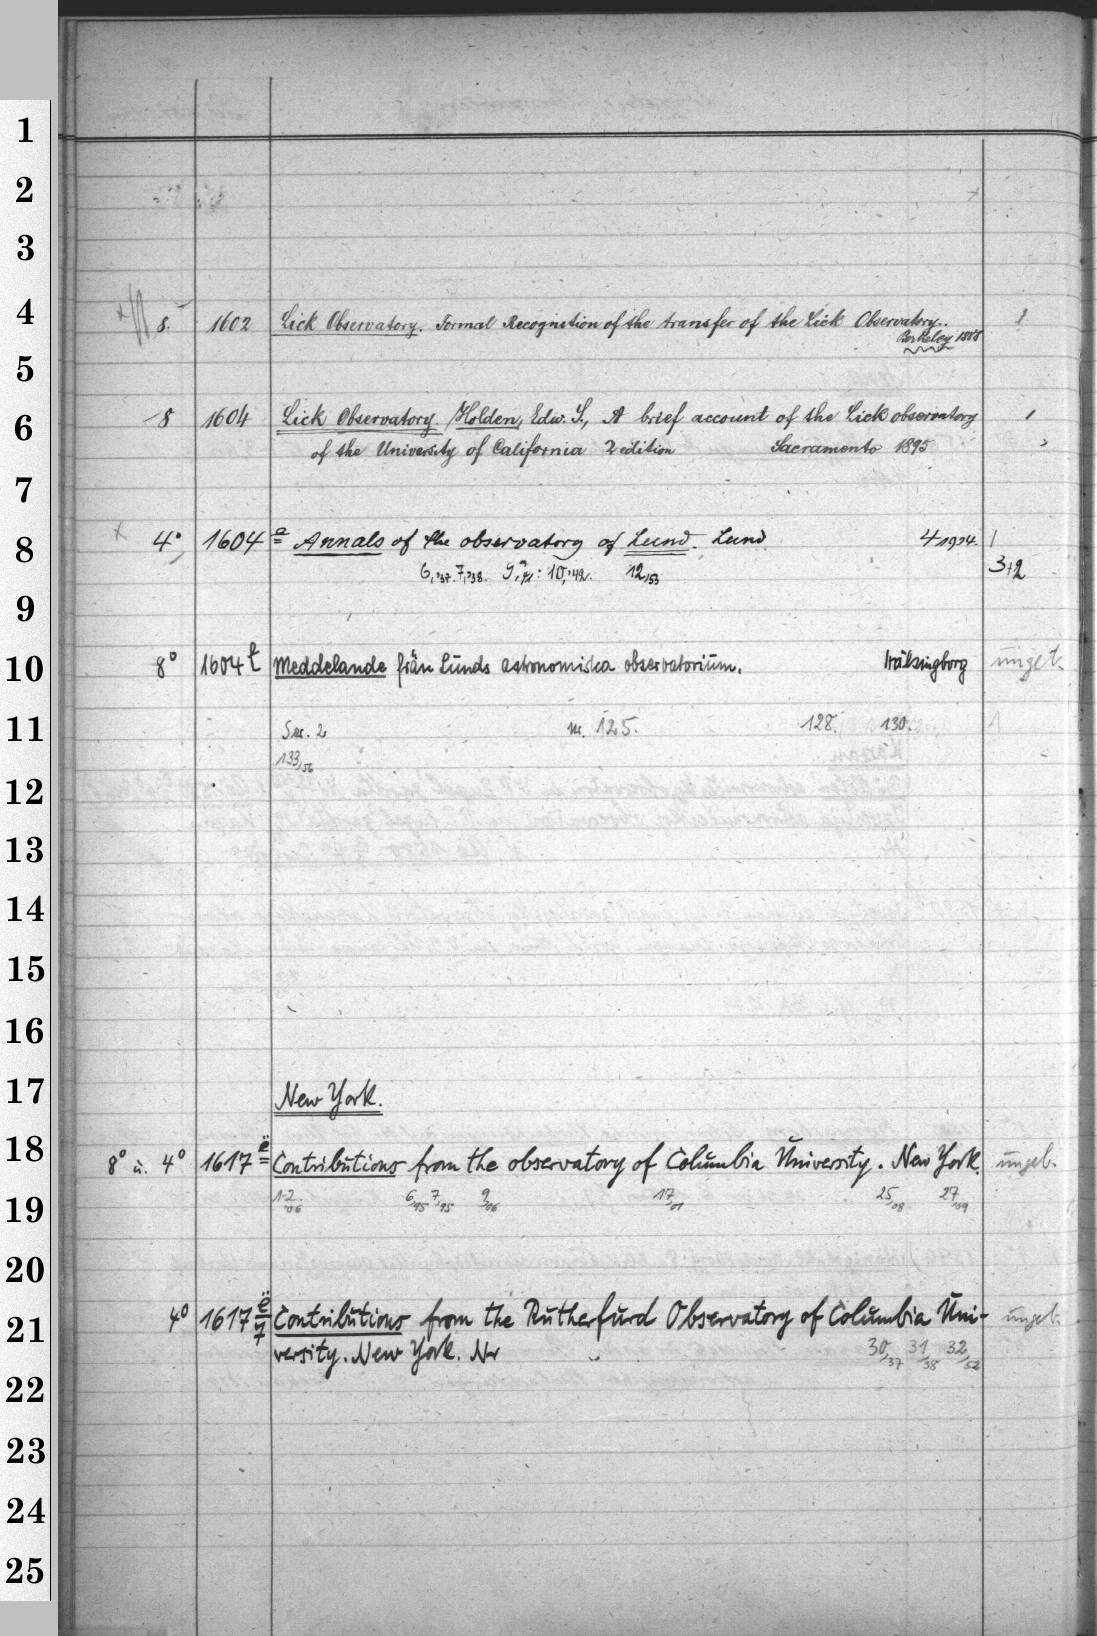 1
2
3
4
8. 1602 Lick Observatory. Formal Recognition of the transfer of the Lick Observatory..
Berkeley 1888
5
6
8 1604 Lick Observatory. Holden, Edw. S., A brief account of the Lick observatory
of the University of California 2 edition Sacramento 1895
7
8
4° 1604 a Annals of the observatory of Lund. Lund 4 1934. 1
6,'37. 7,'38. 9,'41: 10,'42. 12,53 3+2
9
10
8° 1604 Meddelande från Lunds astronomiska observatorium. ungeb.
11
Ser. 2 nr. 125. 128. 130. 1
133,56
12
13
14
15
16
17
New York.
18
8° u. 4° 1617 Contributions from the observatory of Columbia University. New York. ungeb.
19
1-2,06 6,95 7,95 9,06 17,01 25,08 27,09
20
21
4° 1617 Contributions from the Rutherfurd Observatory of Columbia Uni- ungeb.
versity. New York. Nr 30,37 31,38 32,52
22
23
24
25